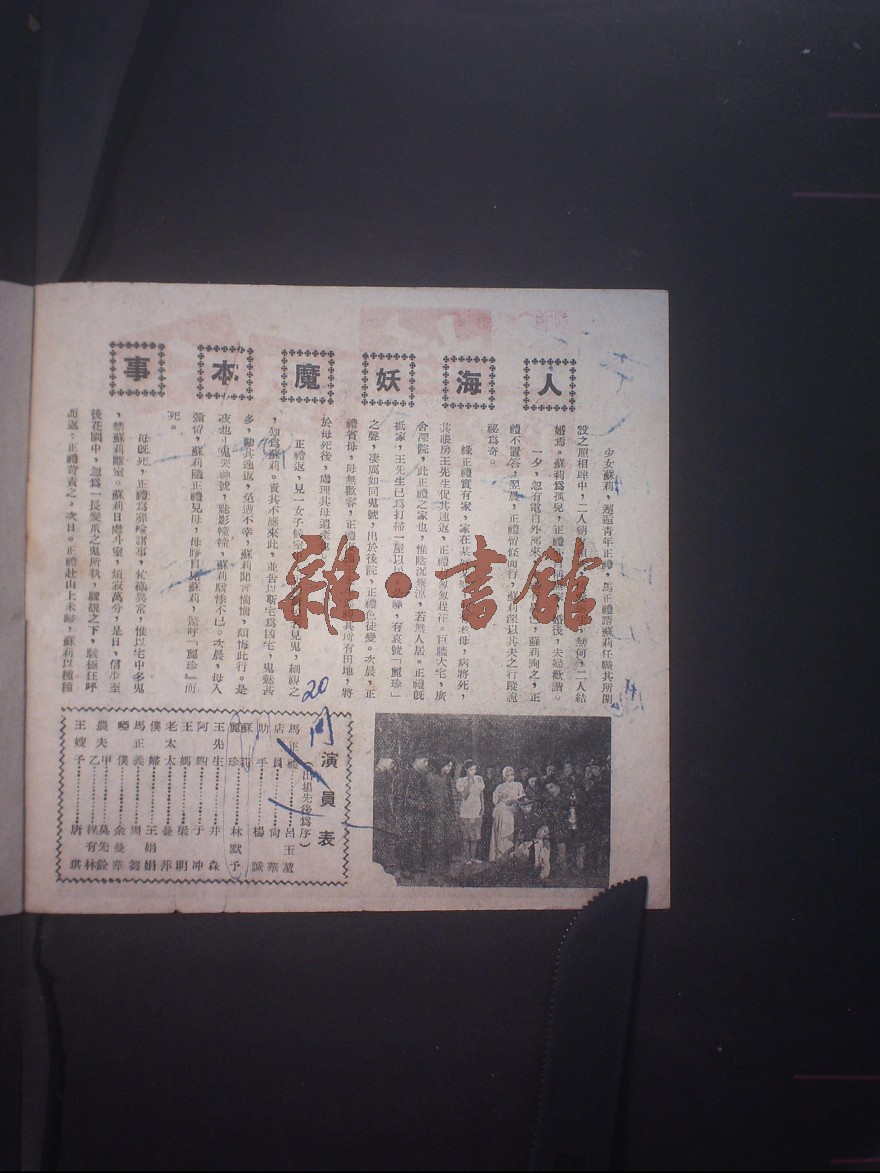 人海妖魔本事
少女蘇莉，邂逅青年正禮，馬正禮請蘇莉任職其所開
設之照相
婚焉。蘇莉為孤兒，正禮
一夕，忽有電自外部來
禮不置答，翌晨，正禮
而行，蘇莉深以其夫之行蹤詭
秘為奇。
緣正禮實有家，家在某
老母，病將死，
其賬房王先生促其速返，正禮
匆匆趕往。巨牆大宅，廣
舍深院，此正禮之家也，惟陰沉凄涼，若無人居。正禮既
抵家，王先生已為打掃一屋以
有哀號「麗珍」
之聲，淒厲如同鬼號，出於後院，正禮色徒變。次晨，正
禮省母，母無歡容，正禮
其所有田地，將
於母死後，處理其母遺產
正禮返，見一女子候室
若見鬼，細視之
，知為蘇莉。責其不應來此，並告以斯宅為凶宅，鬼魅甚
多，勸其速返，免遭不幸，蘇莉聞言惴惴，頗悔此行。是
夜也，鬼哭神號，魅影幢幢，蘇莉驚悸不已。次晨，母入
彌留，蘇莉隨正禮見母，母睜目見蘇莉，驚呼「麗珍」而
死。
母既死，正禮為葬喪諸事，忙碌異常，惟以宅中多鬼
，禁蘇莉離室。蘇莉日處斗室，煩寂萬分，是日，信步至
後花園中，忽為一長髮爪之鬼所執，驟覩之下，駭極狂呼
而返。正禮苛責之。次日。正禮赴山上未歸，蘇莉以種種
演員表
（出場先後為序）
馬正禮……呂玉堃
店員……尙華
助手……楊誠
蘇莉
麗珍……林默予
王先生……井森
阿四……于冲
王媽……梁明
老太太……曼
僕婦……王娟娟
馬正義……周芻
啞僕……余曼華
農夫甲……莫先銓
乙……程有林
王嫂子……唐琪
20
雜·書館